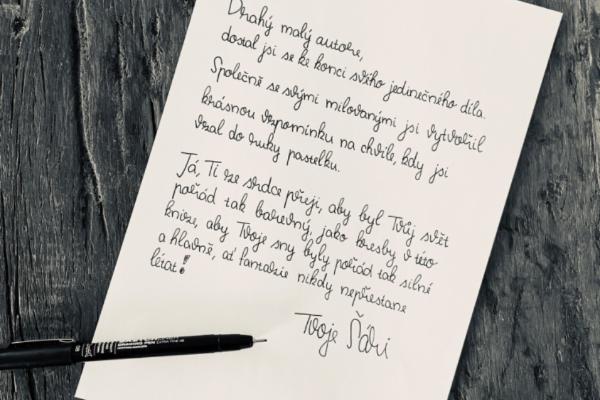 Drahý malý autore,
dostal jsi se ke konci svého jedinečného díla.
Společně se svými milovanými jsi vytvořil
krásnou vzpomínku na chvíle, kdy jsi
vzal do ruky pastelku.
Já, Ti ze srdce přeji, aby byl Tvůj svět
pořád tak barevný, jako kresby v této
knize, aby Tvoje sny byly pořád tak silné
a hlavně, ať fantazie nikdy nepřestane
létat!
Tvoje Ňári